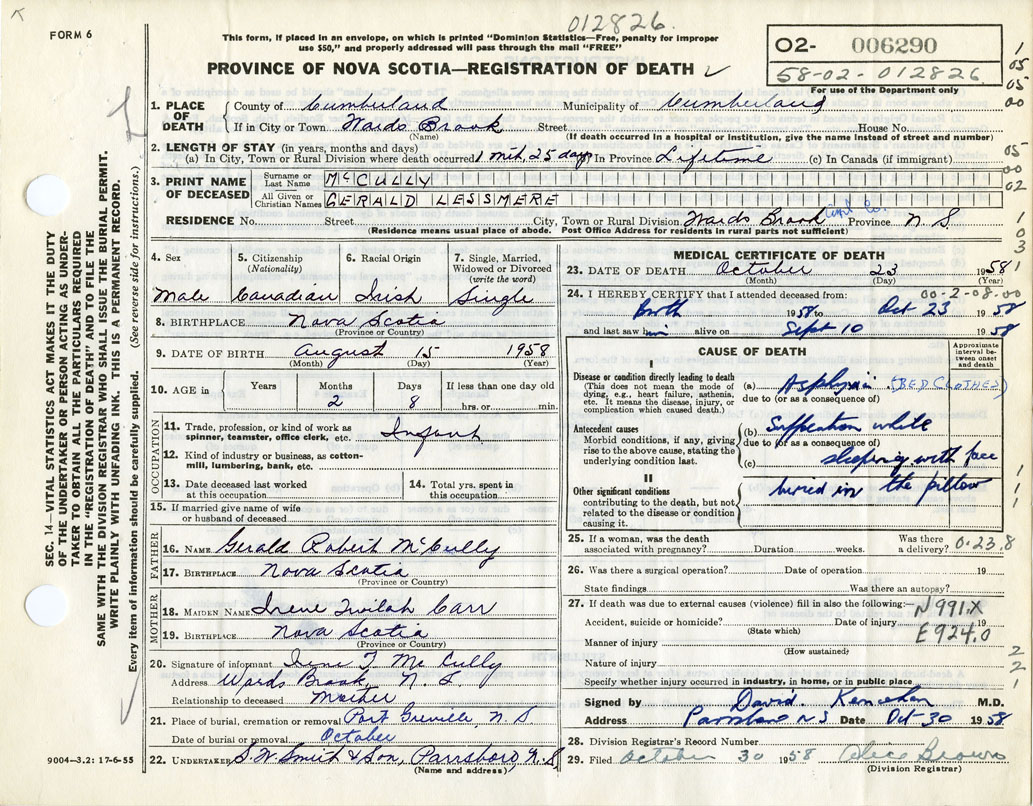 012826.
FORM 6
This form, if placed in an envelope, on which is printed "Dominion Statistics—Free, penalty for improper
use $50," and properly addressed will pass through the mail "FREE"
PROVINCE OF NOVA SCOTIA—REGISTRATION OF DEATH
02- 006290
58-02-012826
For use of the Department only
1. PLACE OF DEATH County of Cumberland Municipality of Cumberland
If in City or Town Wards Brook Street House No.
(Name) (If death occurred in a hospital or institution, give the name instead of street and number)
2. LENGTH OF STAY (in years, months and days)
(a) In City, Town or Rural Division where death occurred 1 mth, 25 days In Province Lifetime (c) In Canada (if immigrant)
3. PRINT NAME OF DECEASED Surname or Last Name McCULLY
All Given or Christian Names GERALD LESSMERE
RESIDENCE No. Street City, Town or Rural Division Wards Brook Cumb Co. Province N.S
(Residence means usual place of abode. Post Office Address for residents in rural parts not sufficient)
4. Sex Male
5. Citizenship (Nationality) Canadian
6. Racial Origin Irish
7. Single, Married, Widowed or Divorced (write the word) Single
8. BIRTHPLACE Nova Scotia
(Province or Country)
9. DATE OF BIRTH August 15 1958
(Month) (Day) (Year)
10. AGE in Years Months 2 Days 8 If less than one day old hrs. or min.
OCCUPATION
11. Trade, profession, or kind of work as spinner, teamster, office clerk, etc. Infant
12. Kind of industry or business, as cotton-mill, lumbering, bank, etc.
13. Date deceased last worked at this occupation
14. Total yrs. spent in this occupation
15. If married give name of wife or husband of deceased
FATHER
16. NAME Gerald Robert McCully
17. BIRTHPLACE Nova Scotia
(Province or Country)
MOTHER
18. MAIDEN NAME Irene Twilah Carr
19. BIRTHPLACE Nova Scotia
(Province or Country)
20. Signature of informant Irene T. McCully
Address Wards Brook, N. S.
Relationship to deceased Mother
21. Place of burial, cremation or removal Port Greville, N.S
Date of burial or removal October
22. UNDERTAKER S.W. Smith & Son, Parrsboro, N.S
(Name and address)
9004—3.2: 17-6-55
MEDICAL CERTIFICATE OF DEATH
23. DATE OF DEATH October 23 1958
(Month) (Day) (Year)
24. I HEREBY CERTIFY that I attended deceased from: 00-2-08.00
Birth 1958 to Oct 23 1958
and last saw him alive on Sept 10 1958
CAUSE OF DEATH
Approximate interval between onset and death
I
Disease or condition directly leading to death
(This does not mean the mode of dying, e.g., heart failure, asthenia, etc. It means the disease, injury, or complication which caused death.)
(a) Asphyxia (BED CLOTHES)
due to (or as a consequence of)
Antecedent causes
Morbid conditions, if any, giving rise to the above cause, stating the underlying condition last.
(b) Suffocation while
due to (or as a consequence of)
(c) sleeping with face
II
Other significant conditions
contributing to the death, but not related to the disease or condition causing it.
buried in the pillow
25. If a woman, was the death associated with pregnancy? Duration weeks. Was there a delivery? 0.23.8
26. Was there a surgical operation? Date of operation 19
State findings Was there an autopsy?
27. If death was due to external causes (violence) fill in also the following:— N991.X
Accident, suicide or homicide? Date of injury 19
(State which) E924.0
Manner of injury
(How sustained)
Nature of injury
Specify whether injury occurred in industry, in home, or in public place
Signed by David M.D.
Address Parrsboro NS Date Oct 30 1958
28. Division Registrar's Record Number
29. Filed October 30 1958 Alice Brown
(Division Registrar)
SEC. 14—VITAL STATISTICS ACT MAKES IT THE DUTY
OF THE UNDERTAKER OR PERSON ACTING AS UNDER-
TAKER TO OBTAIN ALL THE PARTICULARS REQUIRED
IN THE "REGISTRATION OF DEATH" AND TO FILE THE
SAME WITH THE DIVISION REGISTRAR WHO SHALL ISSUE THE BURIAL PERMIT.
WRITE PLAINLY WITH UNFADING INK. THIS IS A PERMANENT RECORD.
Every item of information should be carefully supplied. (See reverse side for instructions.)
1
05
05
00
05
00
02
1
0
3
1
1
1
1
2
2
1